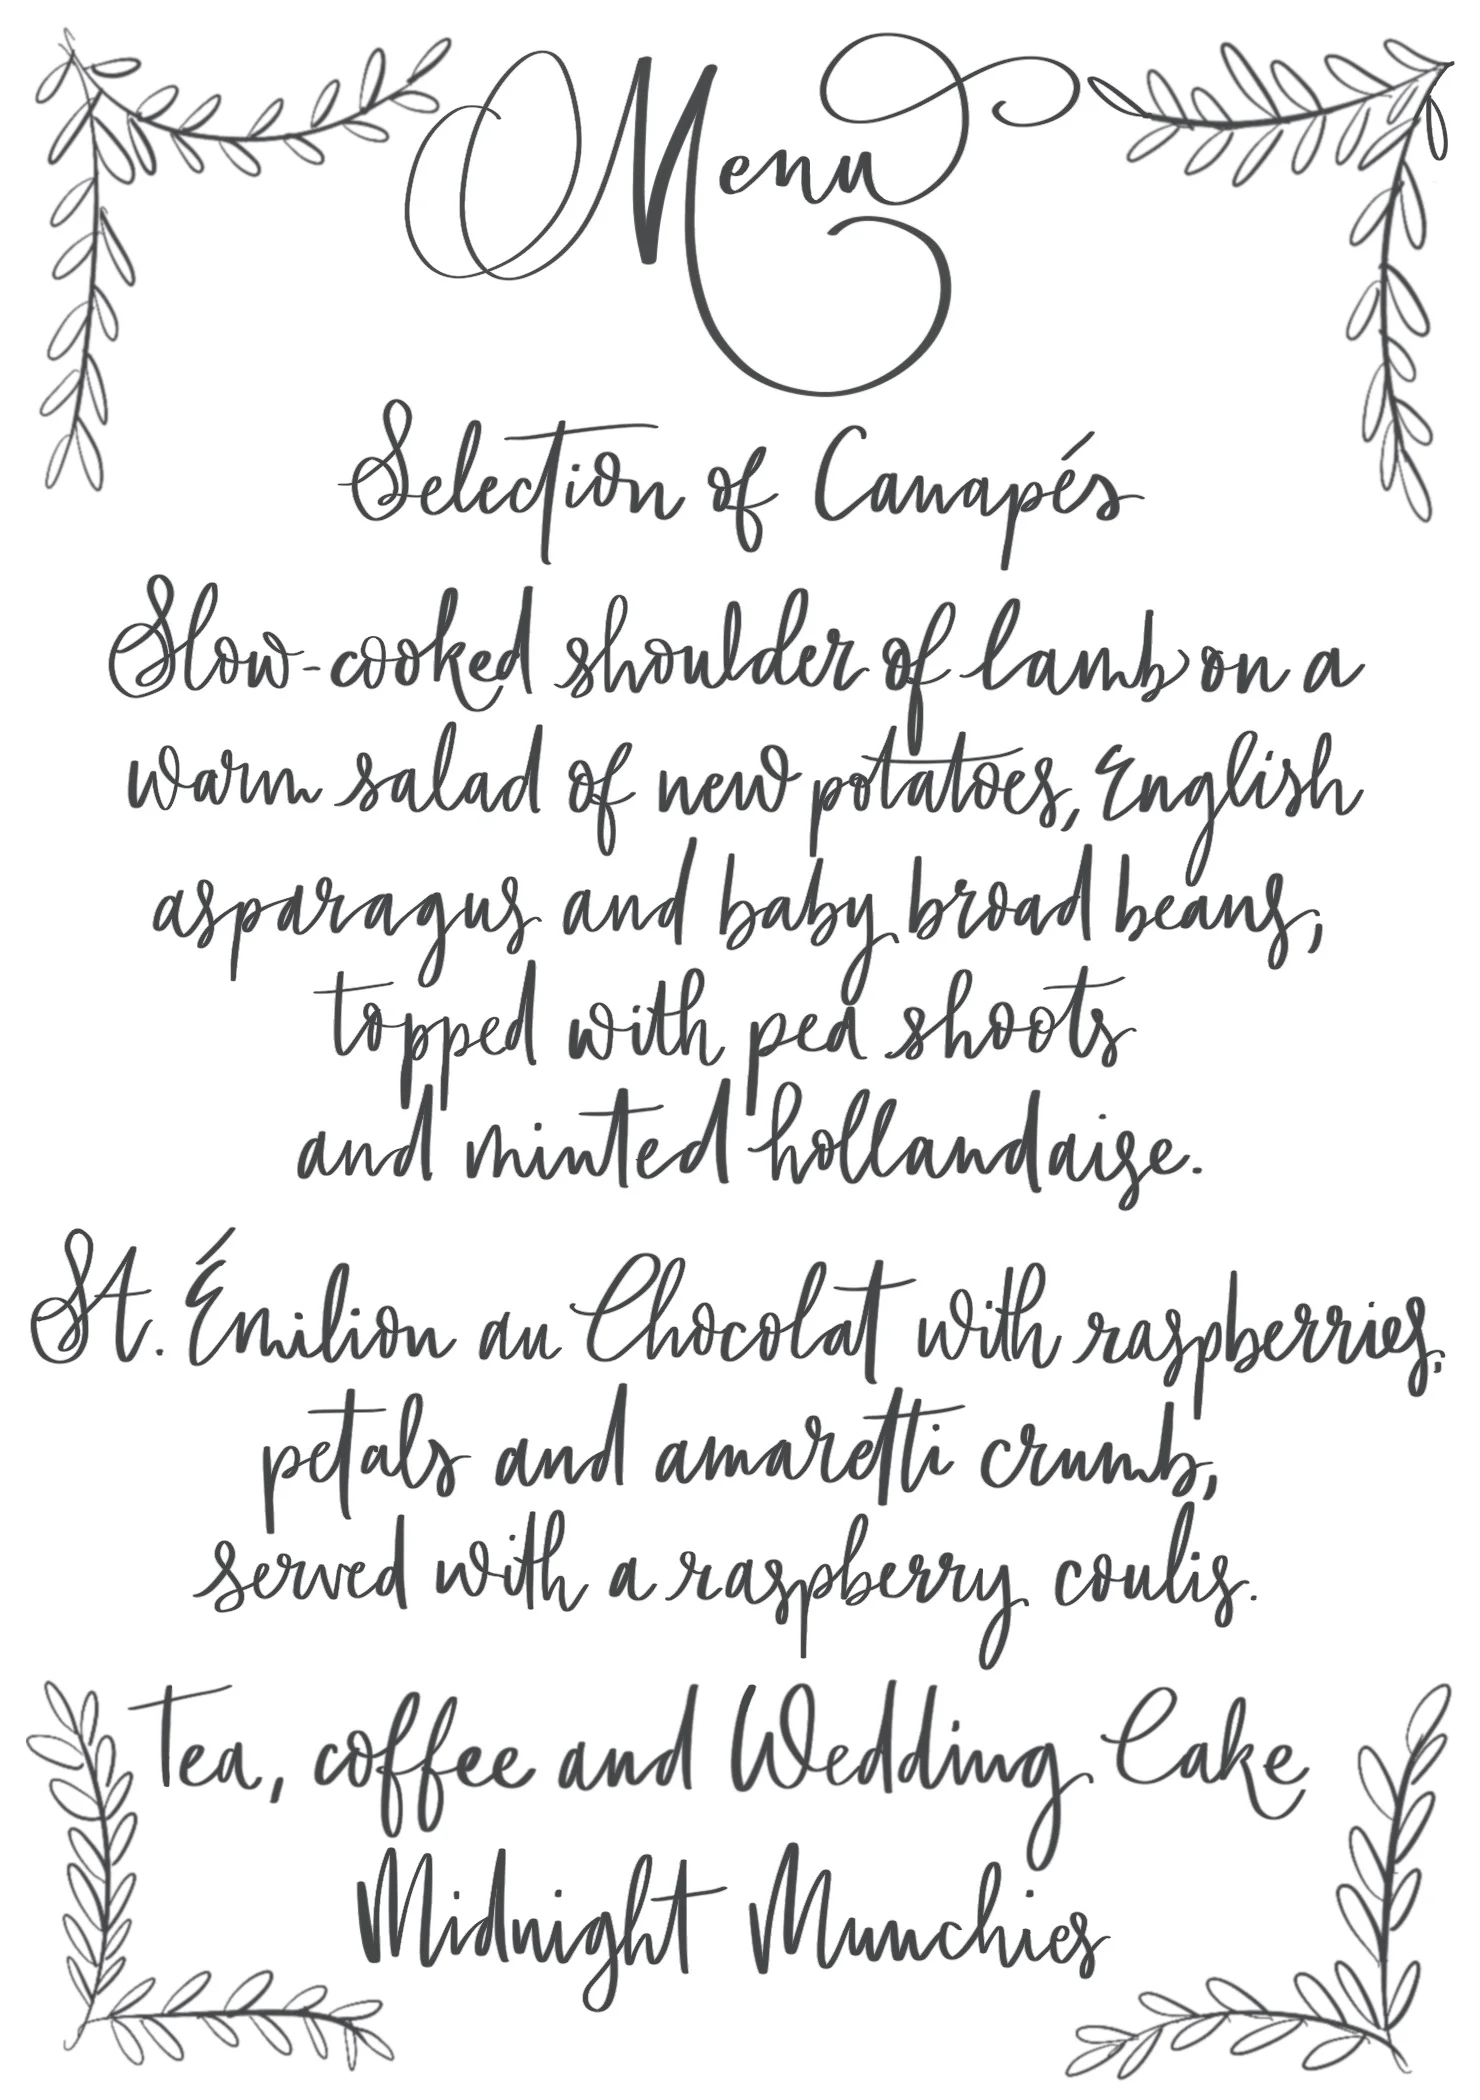 Menu
Selection of Canapés
Slow-cooked shoulder of lamb on a
warm salad of new potatoes, English
asparagus and baby broad beans,
topped with pea shoots
and minted hollandaise.
St. Émilion au Chocolat with raspberries,
petals and amaretti crumb,
served with a raspberry coulis.
Tea, coffee and Wedding Cake
Midnight Munchies